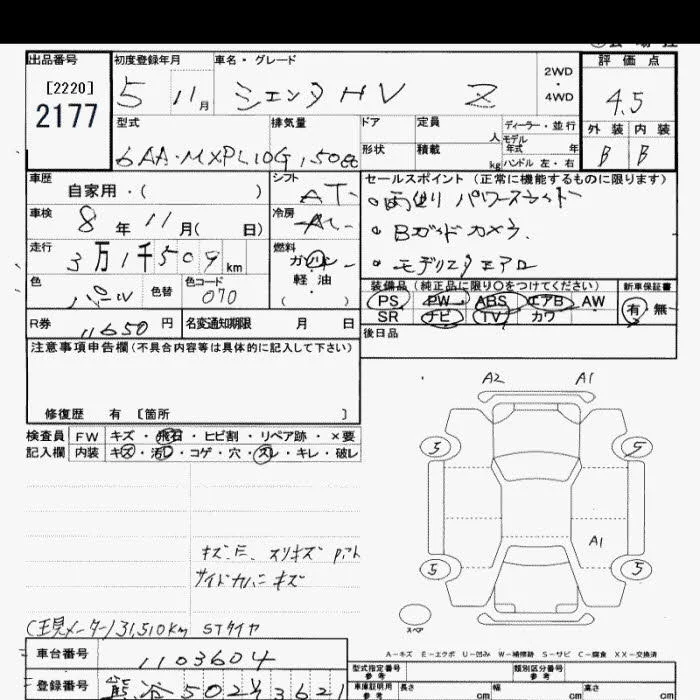 出品番号
[2220]
2177
初度登録年月
5 11月
車名・グレード
シエンタHV Z
2WD
・
4WD
評価点
4.5
外装 内装
B B
型式
6AA・MXPL10G
排気量
1,500cc
ドア
形状
定員 人
積載 kg
ディーラー・並行
モデル年式 年
ハンドル 左・右
車歴
自家用・( )
シフト
AT
車検
8年11月( 日)
冷房
AC
走行
3万1千509km
燃料
ガソリン
軽・油
( )
色
パール
色替
色コード
070
R券
11650円
名変通知期限 月 日
セールスポイント(正常に機能するものに限ります)
・両側パワースライド
・Bガイドカメラ
・モデリスタエアロ
装備品(純正品に限り○をつけてください)
新車保証書
PS PW ABS エアB AW
SR ナビ TV カワ
有・無
後日品
注意事項申告欄(不具合内容等は具体的に記入して下さい)
修復歴 有 [箇所 ]
検査員
記入欄
FW キズ・飛石・ヒビ割・リペア跡・×要
内装 キズ・汚レ・コゲ・穴・スレ・キレ・破レ
キズ、E、スリキズ Pアト
サイドカバーニキズ
(現メーター)31,510Km STタイヤ
A2 A1
5 5
A1
5 5
スペア
A-キズ E-エクボ U-凹み W-補修跡 S-サビ C-腐食 XX-交換済
車台番号
1103604
登録番号
熊谷502 3621
型式指定番号
参考
類別区分番号
参考
車庫証明用
参考
長さ cm
幅 cm
高さ cm